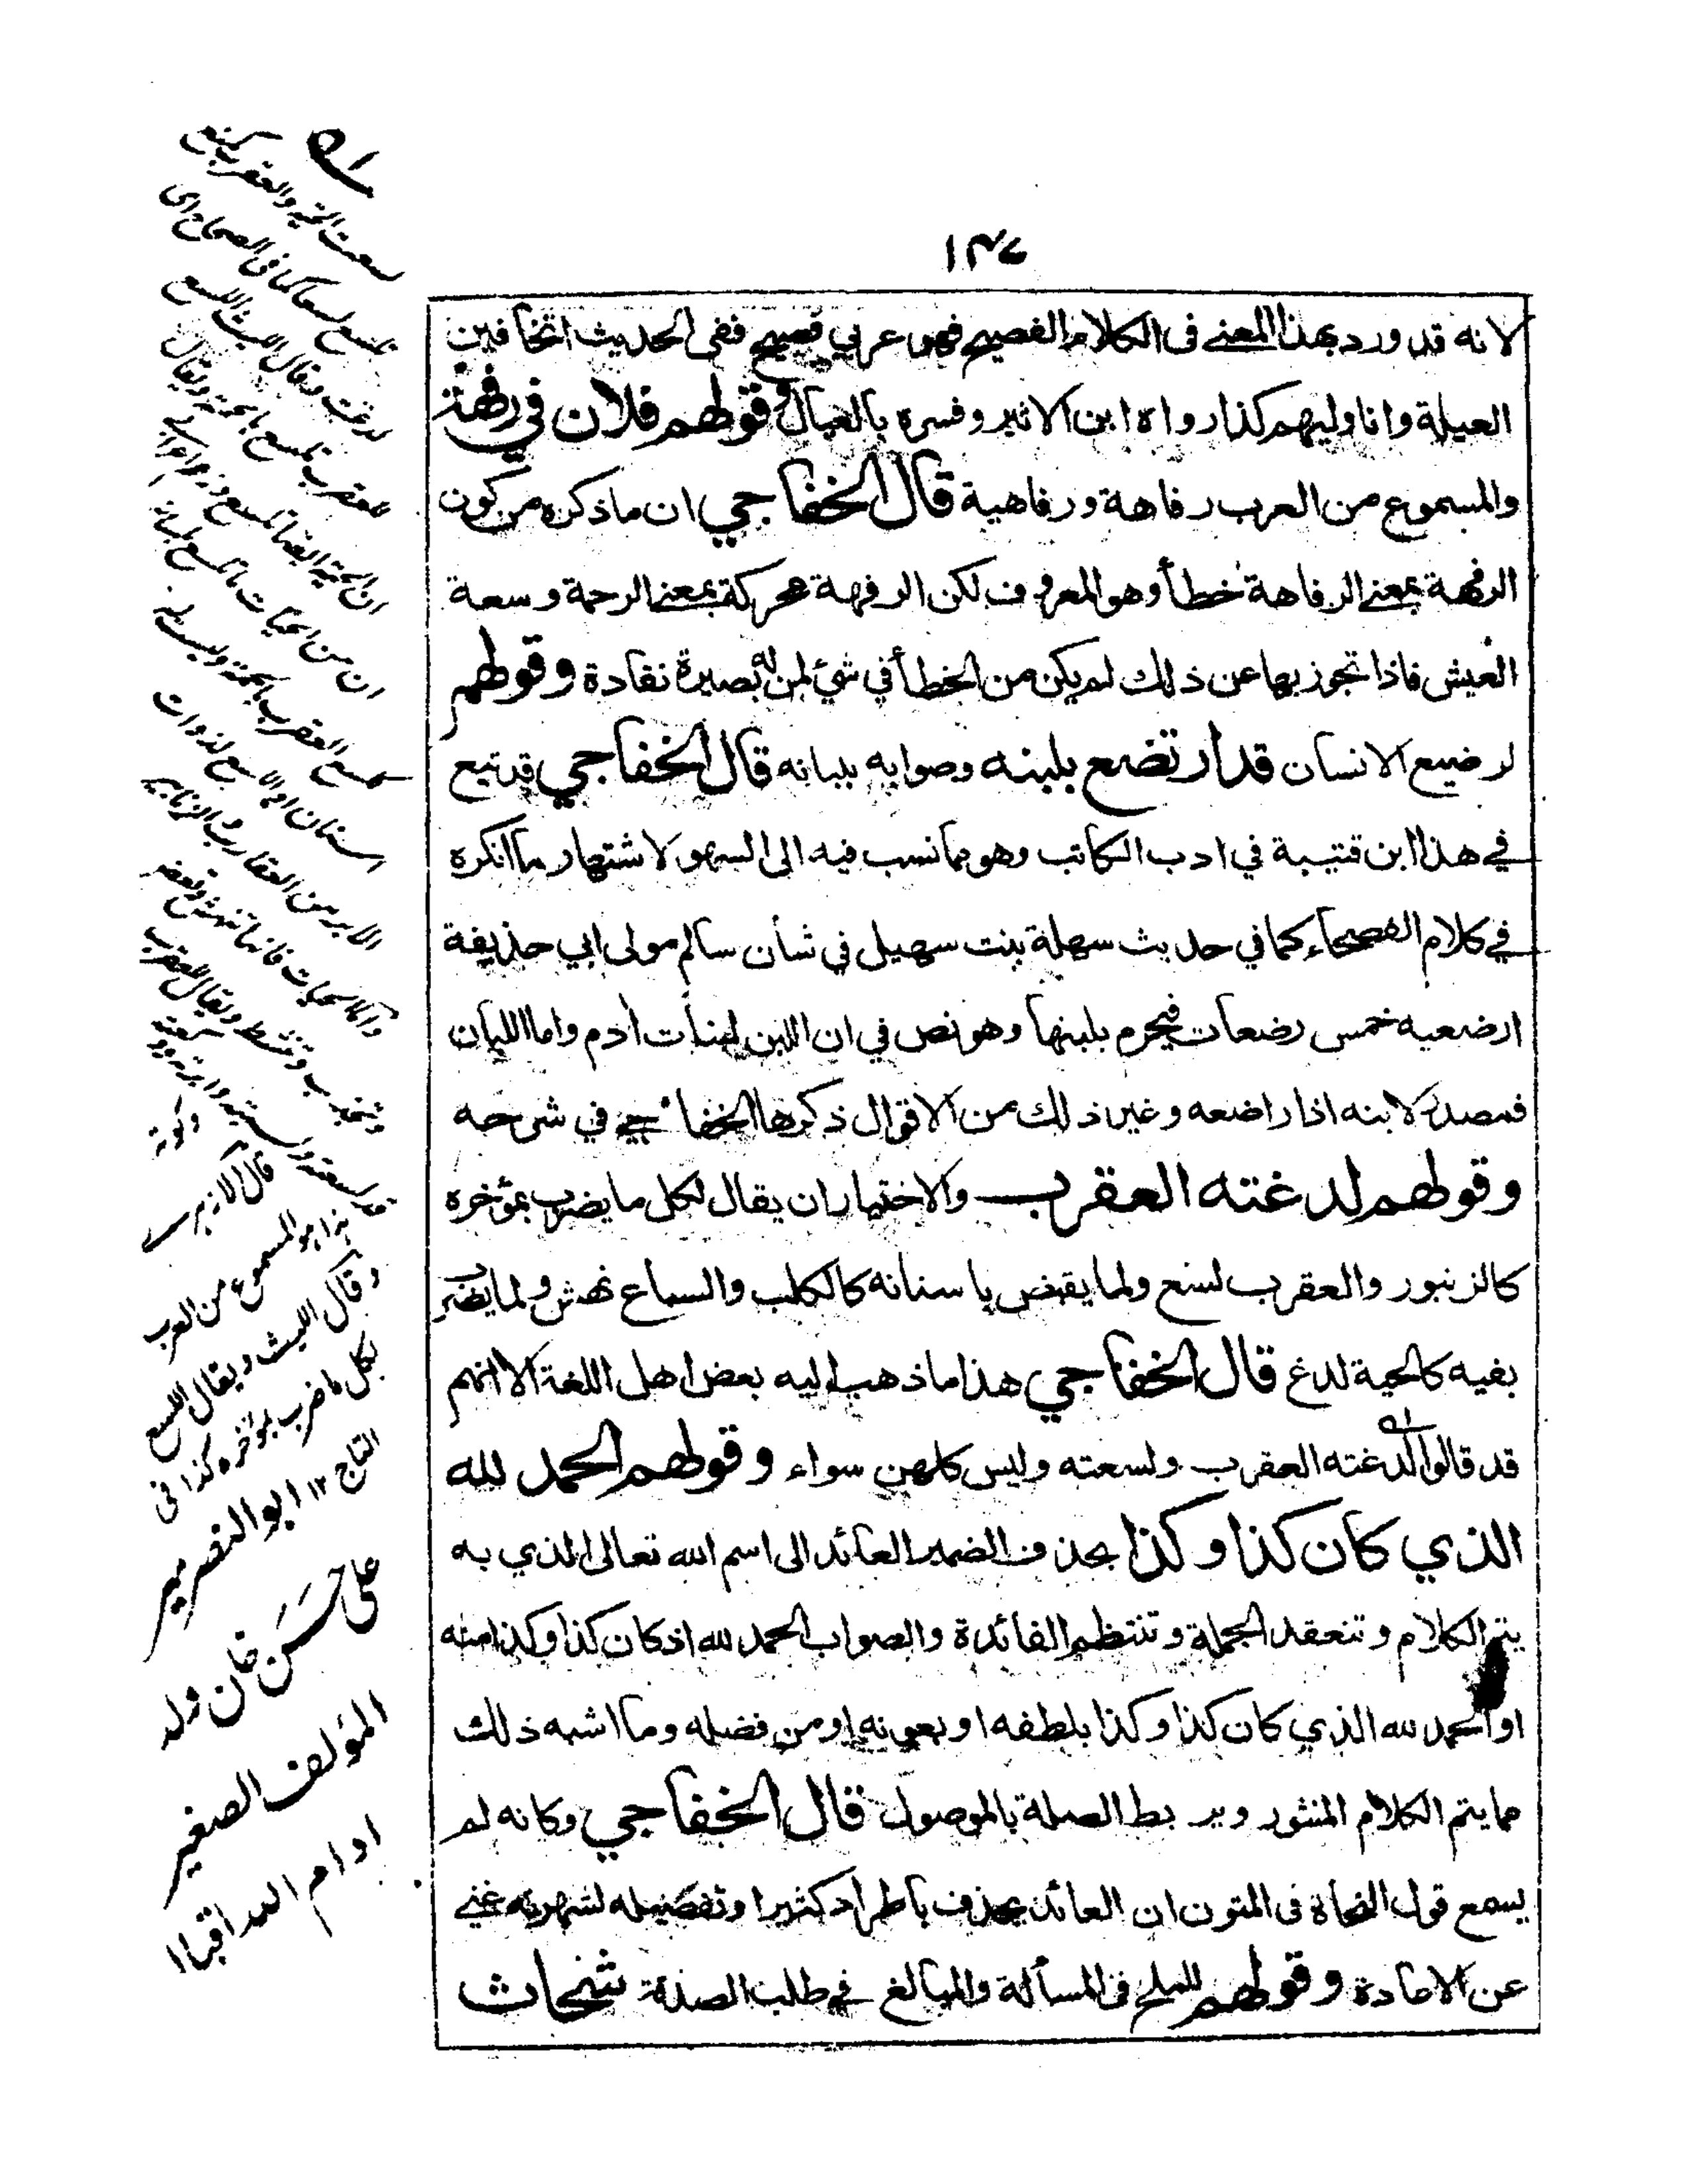 ١٣٧
لانه قد ورد بهذا المعنے فى الكلام الفصيح فهو عربي فصيح ففى الحديث اتخافين
العيلة وانا وليهم كذا رواه ابن الاثير وفسره بالعيال وقولهم فلان في رفهة
والمسموع من العرب رفاهة ورفاهية قال الخفاجي ان ما ذكره من كون
الرفهة بمعنے الرفاهة خطأ وهو المعروف لكن الرفهة محركة بمعنے الرحمة وسعة
العيش فاذا تجوز بها عن ذلك لم يكن من الخطأ في شيء لمن له بصيرة نقادة وقولهم
لرضيع الانسان قد ارتضع بلبنه وصوابه بلبانه قال الخفاجي قد تبع
في هذا ابن قتيبة في ادب الكاتب وهو مما نسب فيه الى السهو لاشتهار ما انكره
في كلام الفصحاء كما في حديث سهلة بنت سهيل في شأن سالم مولى ابي حذيفة
ارضعيه خمس رضعات فيحرم بلبنها وهو نص في ان اللبن لبنات أدم واما اللبان
فمصدر لابنه اذا راضعه وغير ذلك من الاقوال ذكرها الخفاجي في شرحه
وقولهم لدغته العقرب والاختيار ان يقال لكل ما يضرب بمؤخره
كالزنبور والعقرب لسع ولما يقبض باسنانه كالكلب والسباع نهش ولما يضرب
بفيه كالحية لدغ قال الخفاجي هذا ما ذهب اليه بعض اهل اللغة الا انهم
قد قالوا لدغته العقرب ولسعته وليس كلهن سواء وقولهم الحمد لله
الذي كان كذا وكذا بحذف الضمير العائد الى اسم الله تعالى الذي به
يتم الكلام وتنعقد الجملة وتنتظم الفائدة والصواب الحمد لله اذ كان كذا وكذا منه
او الحمد لله الذي كان كذا وكذا بلطفه او بعونه او من فضله وما اشبه ذلك
مما يتم الكلام المنثور ويربط الصلة بالموصول قال الخفاجي وكانه لم
يسمع قول النحاة فى المتون ان العائد يحذف باطراد كثيرا وتفصيله لشهرته غني
عن الاعادة وقولهم للملح فى المسألة والمبالغ في طلب الصدقة شحاث
لسعت الحية والعقرب كمنع
تلسع لسعا كما فى الصحاح اى
لدغت وقال الليث اللسع
للعقرب تلسع بالحمة ويقال
ان الحية ايضا تلسع
ان من الحيات ما تلسع بلسانه
العقرب بالحمة وليست له
اسنان او اللسع لذوات
الابر من العقارب والزنابير
واما الحيات فانها تنهش وتعض
وتجذب وتنشط ويقال للعقرب
قد لسعته
قال الازهرى
هذا هو المسموع من العرب
وقال الليث ويقال اللسع
لكل ما ضرب بمؤخره كذا فى
التاج ١٢ ابو النصر مير
على حسن خان ولد
المؤلف الصغير
ادام الله اقبالا